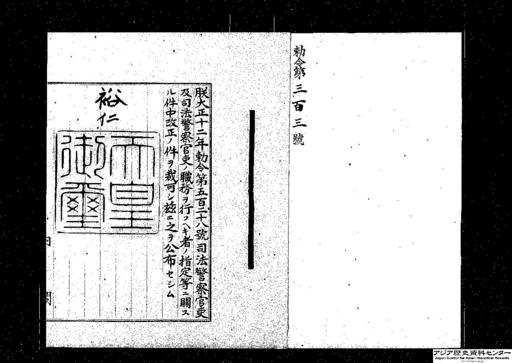 勅令第三百三號
朕大正十二年勅令第五百二十八號司法警察官吏
及司法警察官吏ノ職務ヲ行フヘキ者ノ指定等ニ關ス
ル件中改正ノ件ヲ裁可シ玆ニ之ヲ公布セシム
裕仁
天皇
御璽
内閣
アジア歴史資料センター
Japan Center for Asian Historical Records